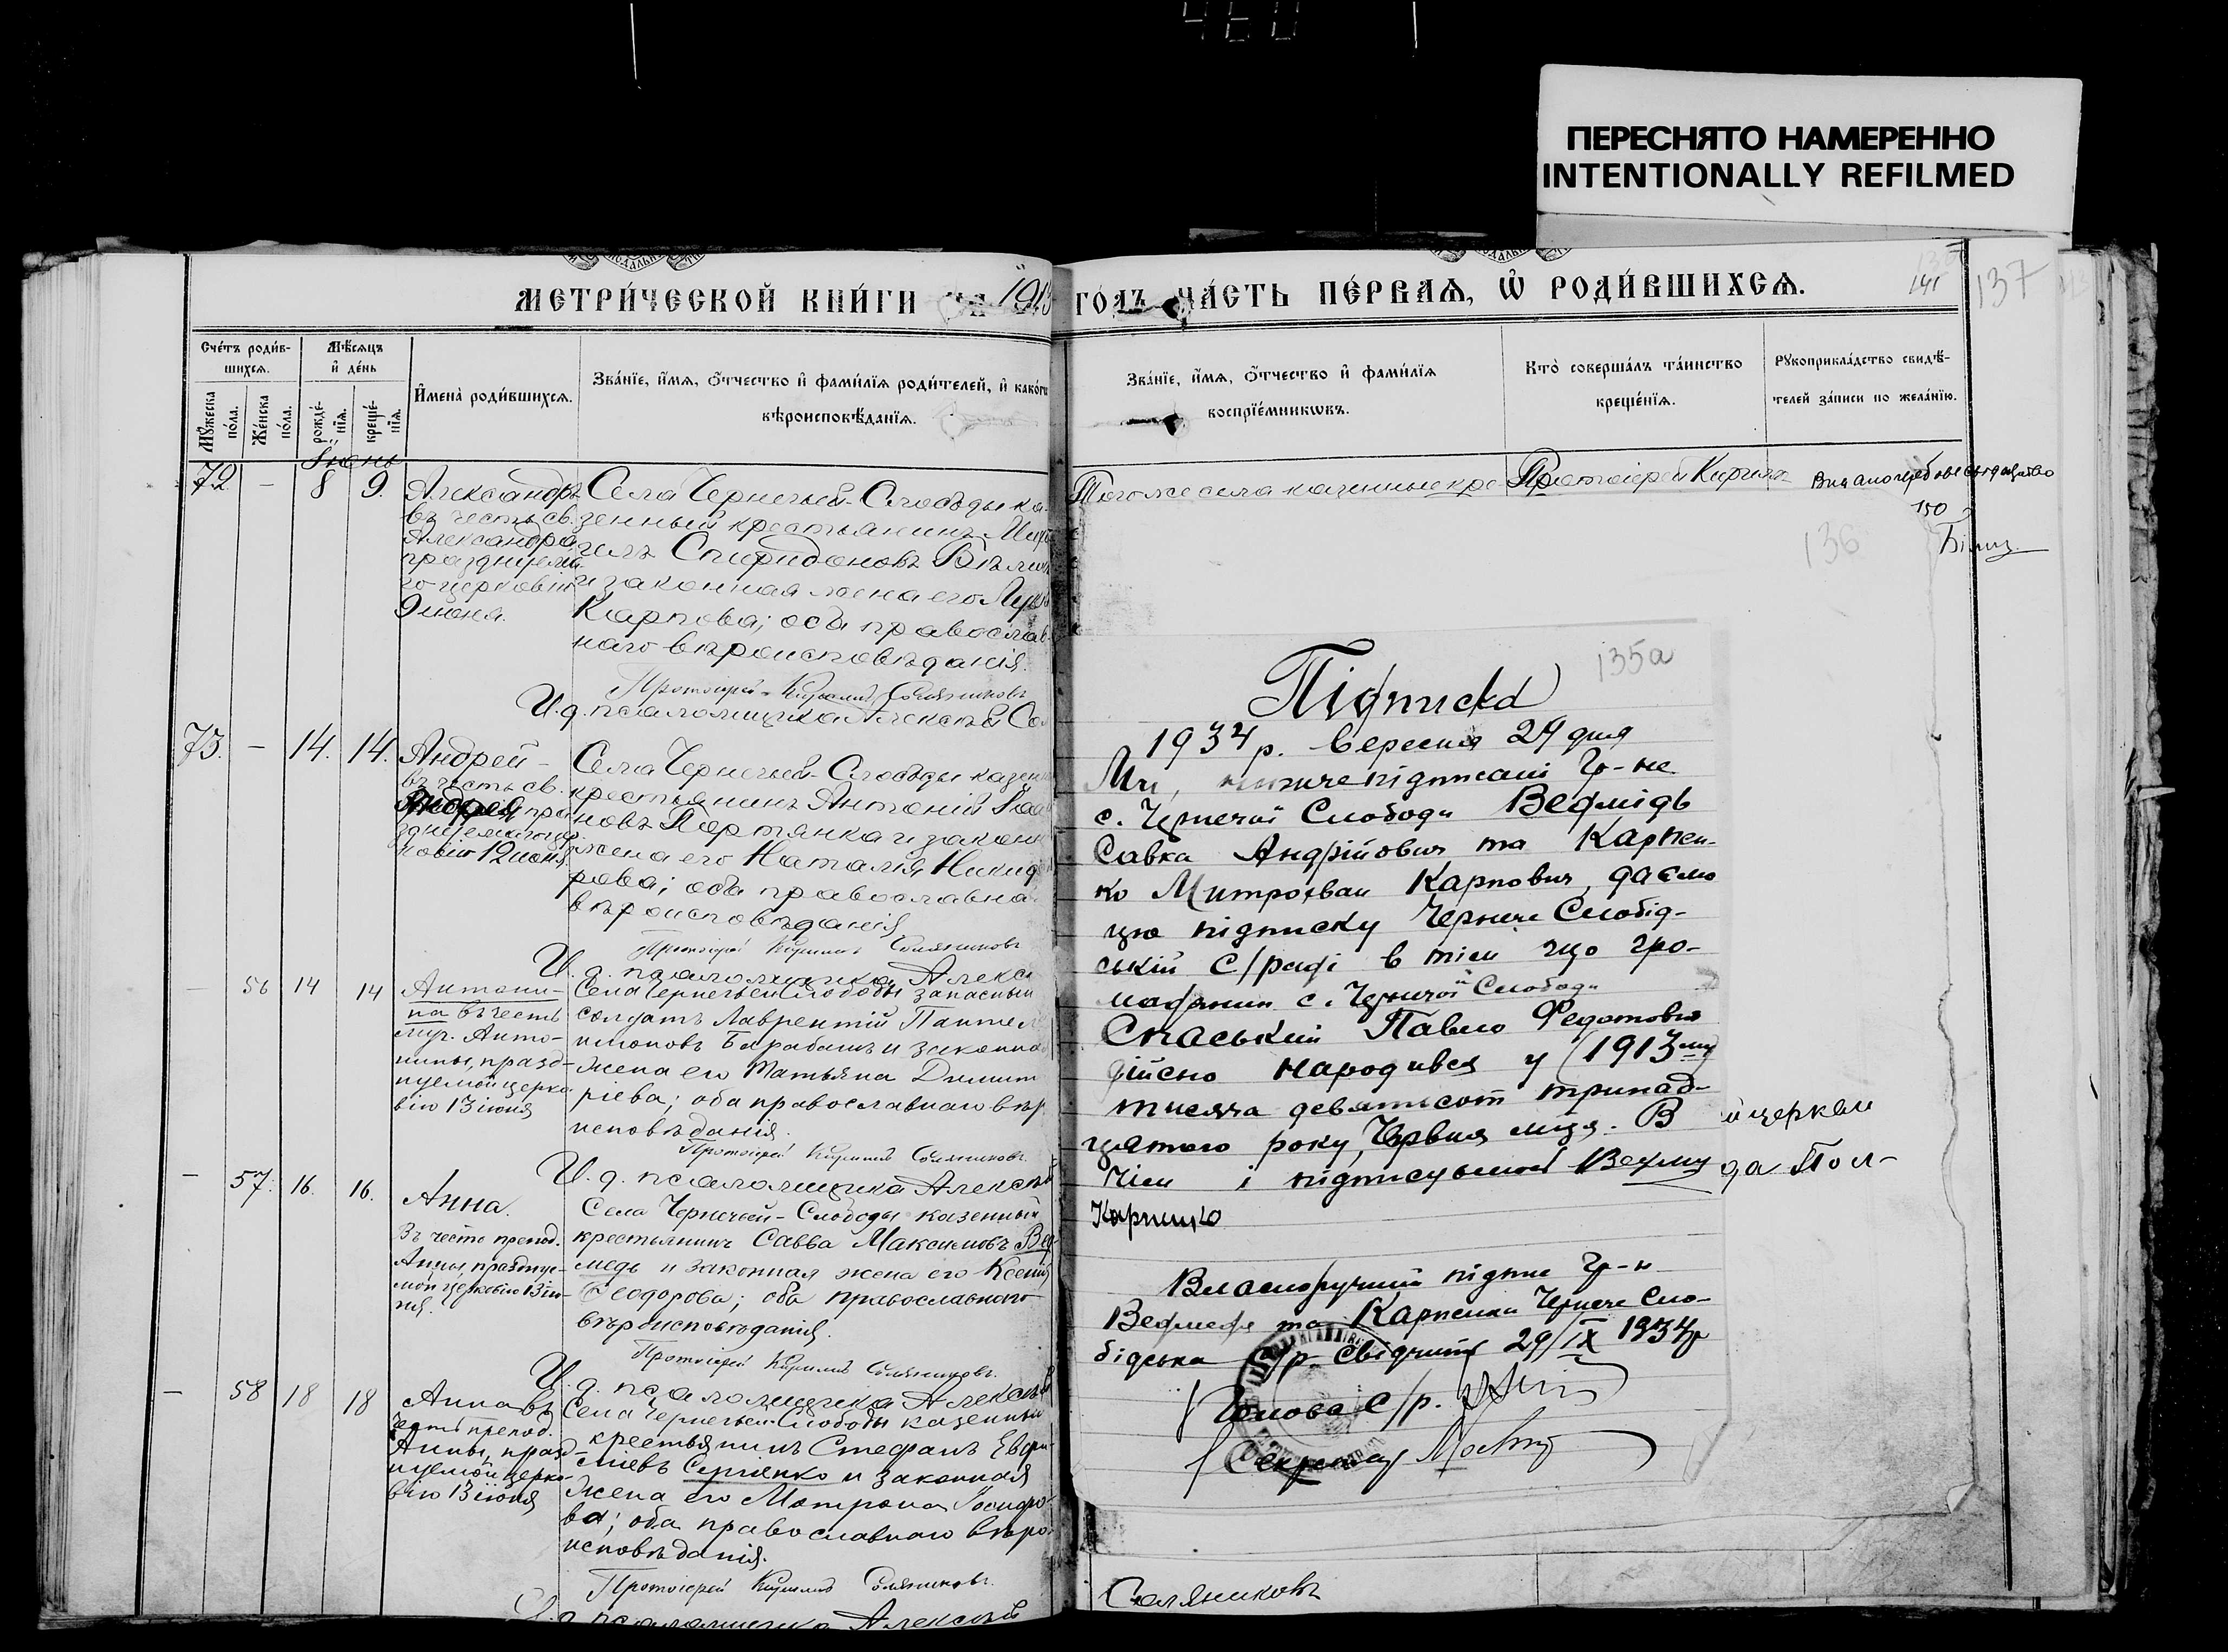 ПЕРЕСНЯТО НАМЕРЕННО
INTENTIONALLY REFILMED
МЕТРИ́ЧЕСКОЙ КНИ́ГИ НА 1913
ГО́ДЪ ЧА́СТЬ ПЕ́РВАѦ, Ѡ҆ РОДИ́ВШИХСѦ.
141
137
Сче́тъ роди́в-
шихсѧ.
Мѣ́сѧцъ
и҆ де́нь
Мꙋ́жеска
по́ла.
Же́нска
по́ла.
рожде́-
нїѧ.
креще́-
нїѧ.
И҆мена̀ роди́вшихсѧ.
Зва́нїе, и҆́мѧ, ѻ҆́тчество и҆ фами́лїѧ роди́телей, и҆ како́гѡ
вѣроисповѣ́данїѧ.
Зва́нїе, и҆́мѧ, ѻ҆́тчество и҆ фами́лїѧ
воспрїе́мникѡвъ.
Кто̀ соверша́лъ та́инство
креще́нїѧ.
Рꙋкоприкла́дство свидѣ́-
телей за́писи по жела́нїю.
Іюнь
72 - 8 9.
Александръ
въ честь св.
Александра,
празднуема-
го церковію
9 июня.
Села Чернечьей-Слободы ка-
зенный крестьянинъ Миха-
илъ Спиридоновъ
и законная жена его
Карпова; оба православ-
наго вѣроисповѣданія.
Протоіерей Кириллъ Соляниковъ
И.д. псаломщика Алексѣй Со
73. - 14. 14.
Андрей -
въ честь св.
Андрея, пра
зднуемаго цер
ковію 12 июня
Села Чернечьей-Слободы казен
крестьянинъ Антоній
новъ Портянка и законн
жена его Наталія Никиф
рова; оба православна
вѣроисповѣданія
Протоіерей Кириллъ Соляниковъ
И.д. псаломщика Алекс
- 56 14 14
Антони-
на въ честь
муч. Анто-
нины, празд-
нуемой церко
вію 13 іюня
Села Чернечьей Слободы запасный
солдатъ Лаврентій Пантел
имоновъ Барабашъ и законна
жена его Татьяна Димит
ріева; оба православнаго вѣр
исповѣданія.
Протоіерей Кириллъ Соляниковъ.
И.д. псаломщика Алексѣй
- 57. 16. 16.
Анна.
Въ честь препод.
Анны, празднуе-
мой церковію 13 ію-
ня.
Села Чернечьей-Слободы казенный
крестьянинъ Савва Максимовъ Вед-
медь и законная жена его Ксенія
Ѳеодорова; оба православнаго
вѣроисповѣданія.
Протоіерей Кириллъ Соляниковъ.
И.д. псаломщика Алексѣй
- 58 18 18
Анна въ
честь препод.
Анны, празд-
нуемой церко-
вію 13 іюня
Села Чернечьей Слободы казенный
крестьянинъ Стефанъ
Сергіенко и законная
жена его Матрона
ва; оба православнаго вѣро-
исповѣданія.
Протоіерей Кириллъ Соляниковъ.
И.д. псаломщика Алексѣй
Того же села казенные кре
Протоіерей Кирилл
150
136
135а
Підписка
1934 р. Вересня 29 дня
Ми, нижчепідписані Гр-не
с. Чернечої Слободи Ведмідь
Савка Андрійович та Карпен-
ко Митрофан Карпович, даємо
цю підписку Чернече Слобід-
ській С/раді в тім що гро-
мадянин с. Чернечої Слободи
Спаський Павло Федотович
дійсно народився у (1913му
тисяча девятьсот тринад-
цятого року, Червня міця. В
чім і підписуємось Ведмид
Карпенко
й церкви
да Пол-
Власноручний підпис Гр-н
Ведмедя та Карпенка Чернече Сло-
бідська с/р. свідчить 29/IX 1934р
Голова С/р.
Секретар
Соляниковъ